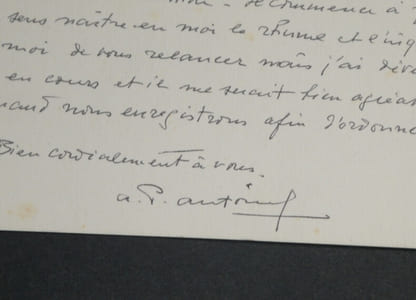 commence à
sens naître en moi le rhume et l'inq
moi de vous relancer mais j'ai
en cours et il me serait bien agréa
uand nous enregistrons afin d'ordonne
Bien cordialement à vous.
a. P. antoine